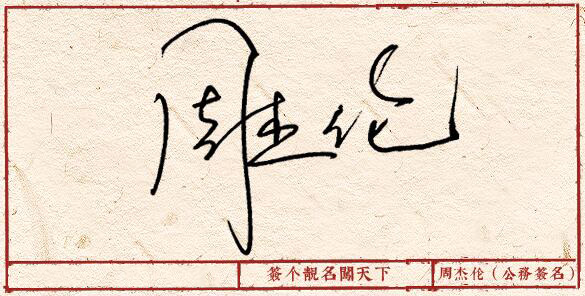 周杰伦
签个靓名闖天下
周杰伦（公務簽名）